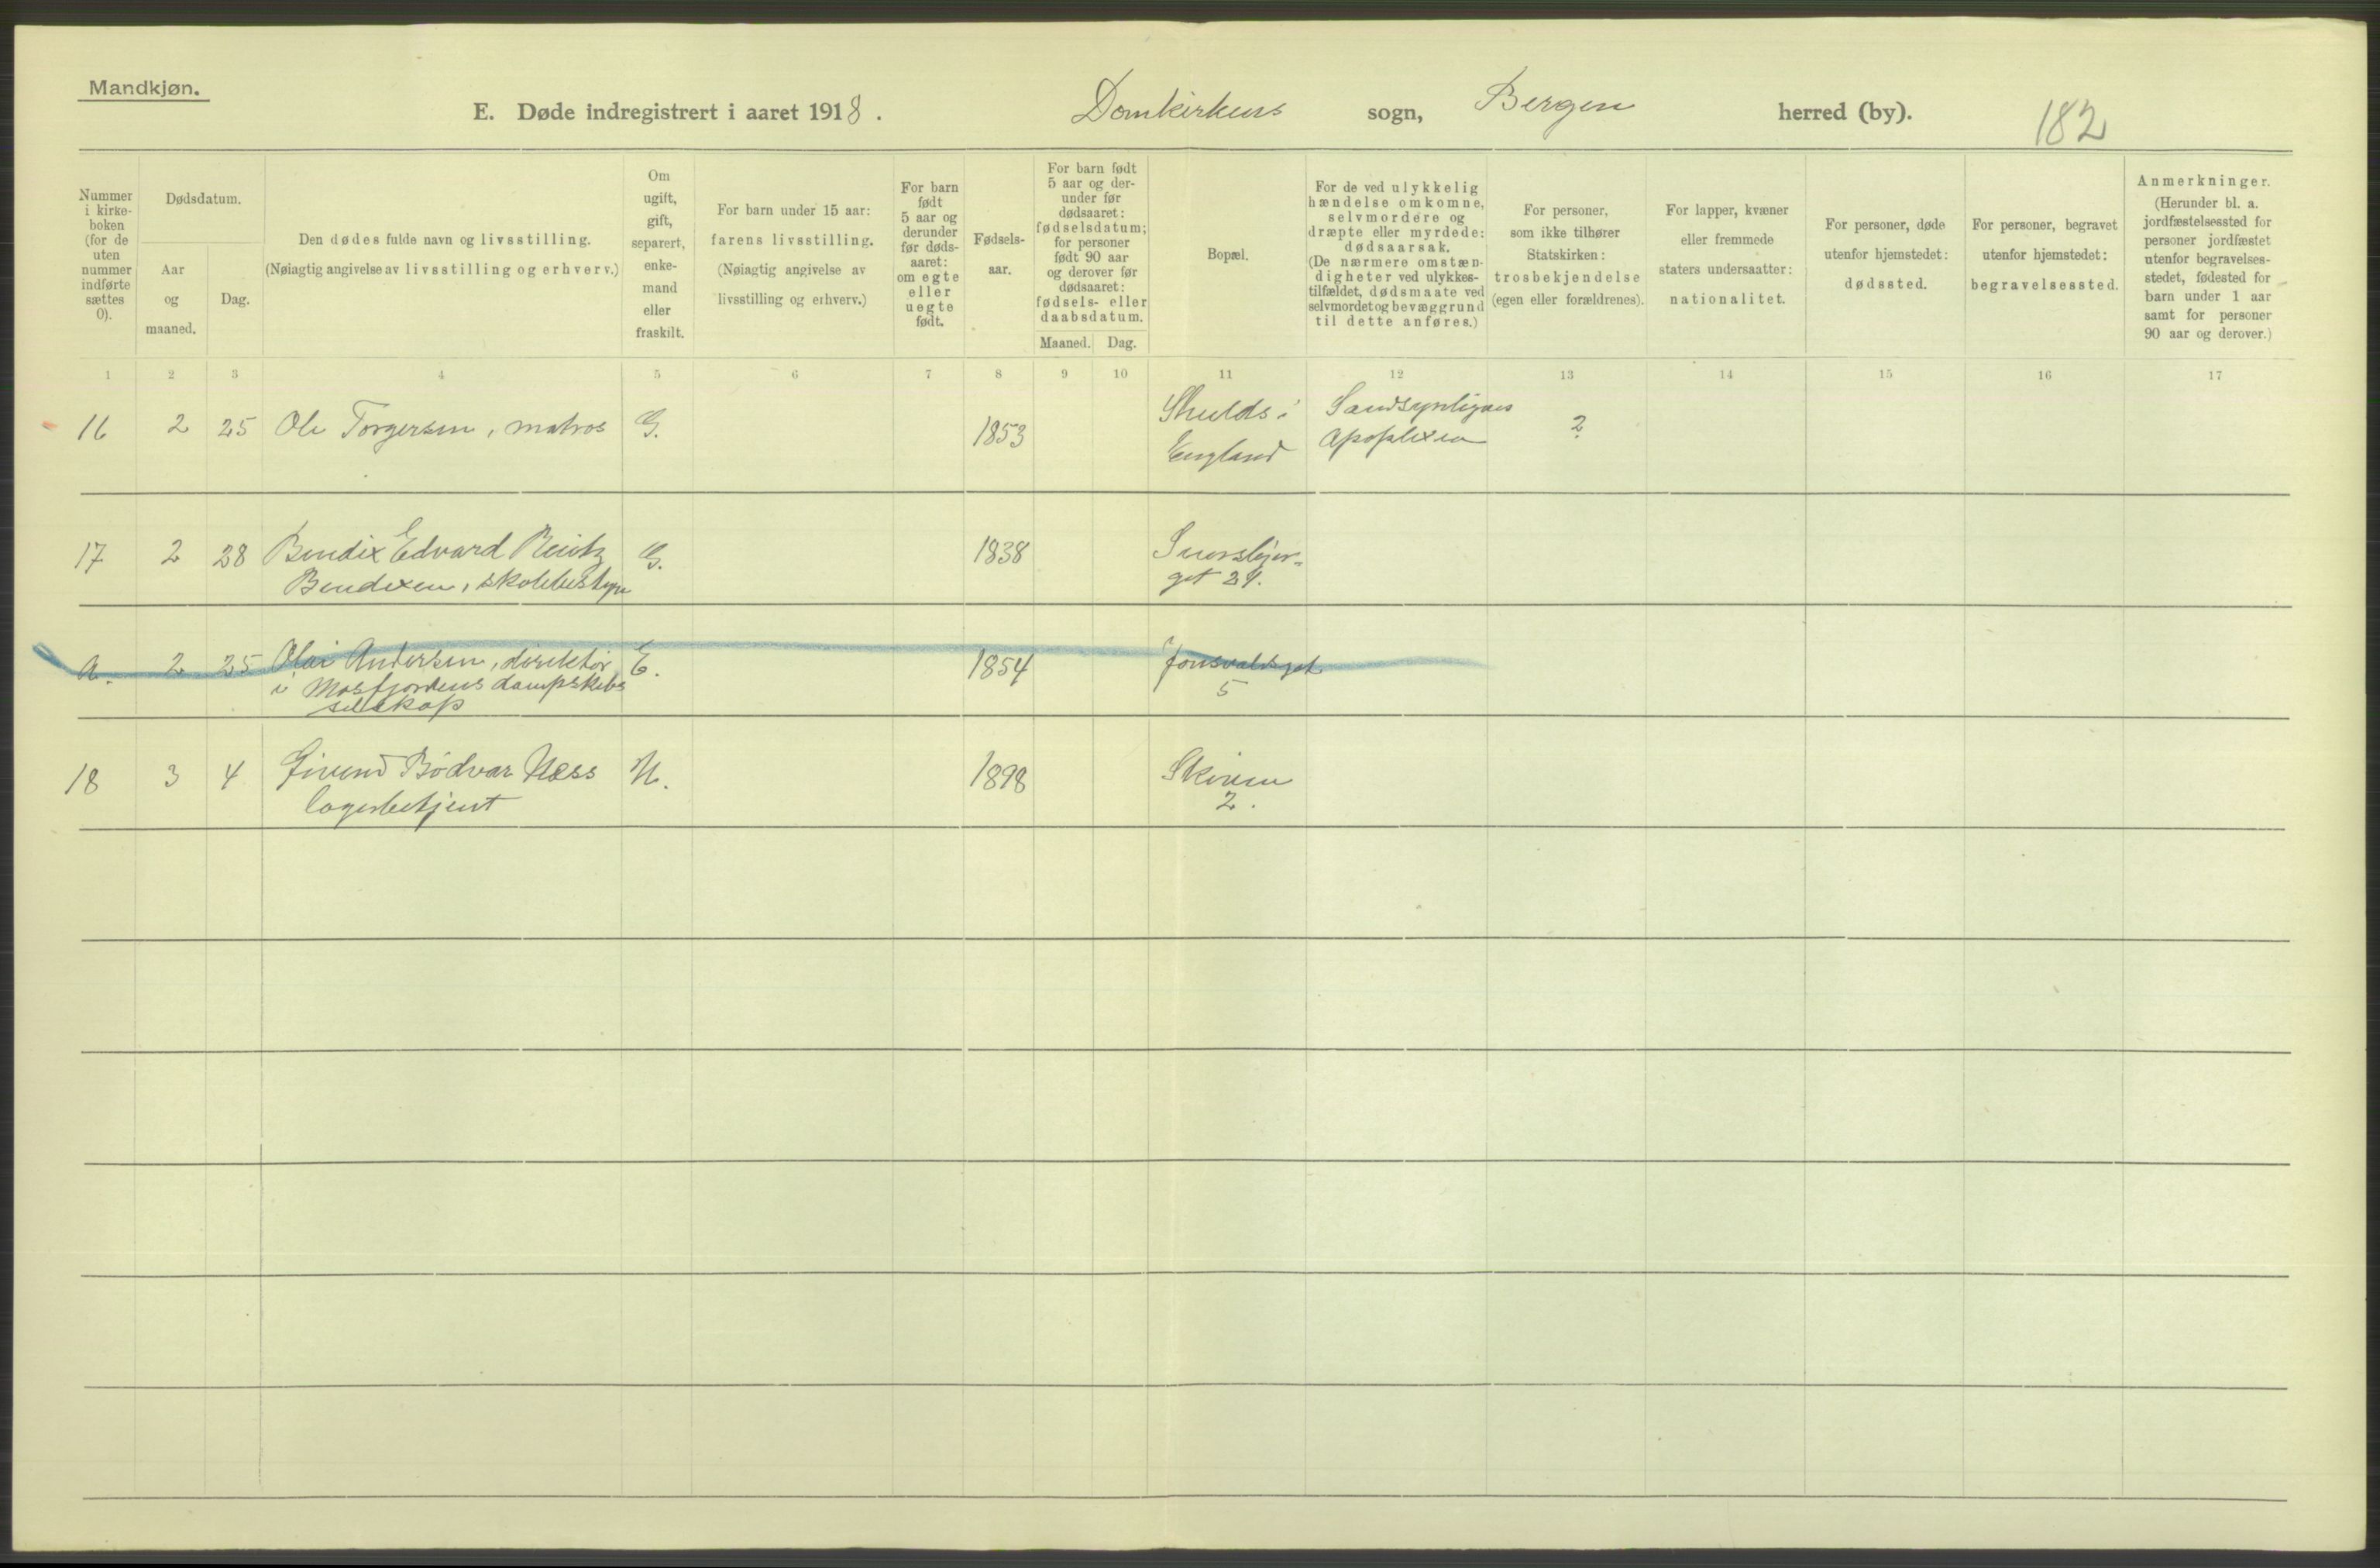 Mandkjøn.
E. Døde indregistrert i aaret 1918. Domkirkens sogn, Bergen herred (by). 182
Nummer i kirke-
boken
(for de
uten
nummer
indførte
sættes
0).
Dødsdatum.
Aar
og
maaned.
Dag.
Den dødes fulde navn og livsstilling.
(Nøiagtig angivelse av livsstilling og erhverv.)
Om
ugift,
gift,
separert,
enke-
mand
eller
fraskilt.
For barn under 15 aar:
farens livsstilling.
(Nøiagtig angivelse av
livsstilling og erhverv.)
For barn
født
5 aar og
derunder
før døds-
aaret:
om egte
eller
uegte
født.
Fødsels-
aar.
For barn født
5 aar og der-
under før
dødsaaret:
fødselsdatum;
for personer
født 90 aar
og derover før
dødsaaret:
fødsels- eller
daabsdatum.
Maaned. Dag.
Bopæl.
For de ved ulykkelig
hændelse omkomne,
selvmordere og
dræpte eller myrdede:
dødsaarsak.
(De nærmere omstæn-
digheter ved ulykkes-
tilfældet, dødsmaate ved
selvmordet og bevæggrund
til dette anføres.)
For personer,
som ikke tilhører
Statskirken:
trosbekjendelse
(egen eller forældrenes).
For lapper, kvæner
eller fremmede
staters undersaatter:
nationalitet.
For personer, døde
utenfor hjemstedet:
dødssted.
For personer, begravet
utenfor hjemstedet:
begravelsessted.
Anmerkninger.
(Herunder bl. a.
jordfæstelsessted for
personer jordfæstet
utenfor begravelses-
stedet, fødested for
barn under 1 aar
samt for personer
90 aar og derover.)
1 2 3 4 5 6 7 8 9 10 11 12 13 14 15 16 17
16 2 25 Ole Torgersen, matros G. 1853 Shields i Sandsynligvis ?
England Apoplexia
17 2 28 Bendix Edvard Reutz G. 1838
Bendixen, skolebestyr get 24.
a. 2 25 Olai Andersen, direktør E. 1854 Jonsvoldsgt
i Mosfjordens dampskibs 5
selskap
18 3 4 Eivind Bødvar Næss U. 1898 Skiven
lagerbetjent 2.